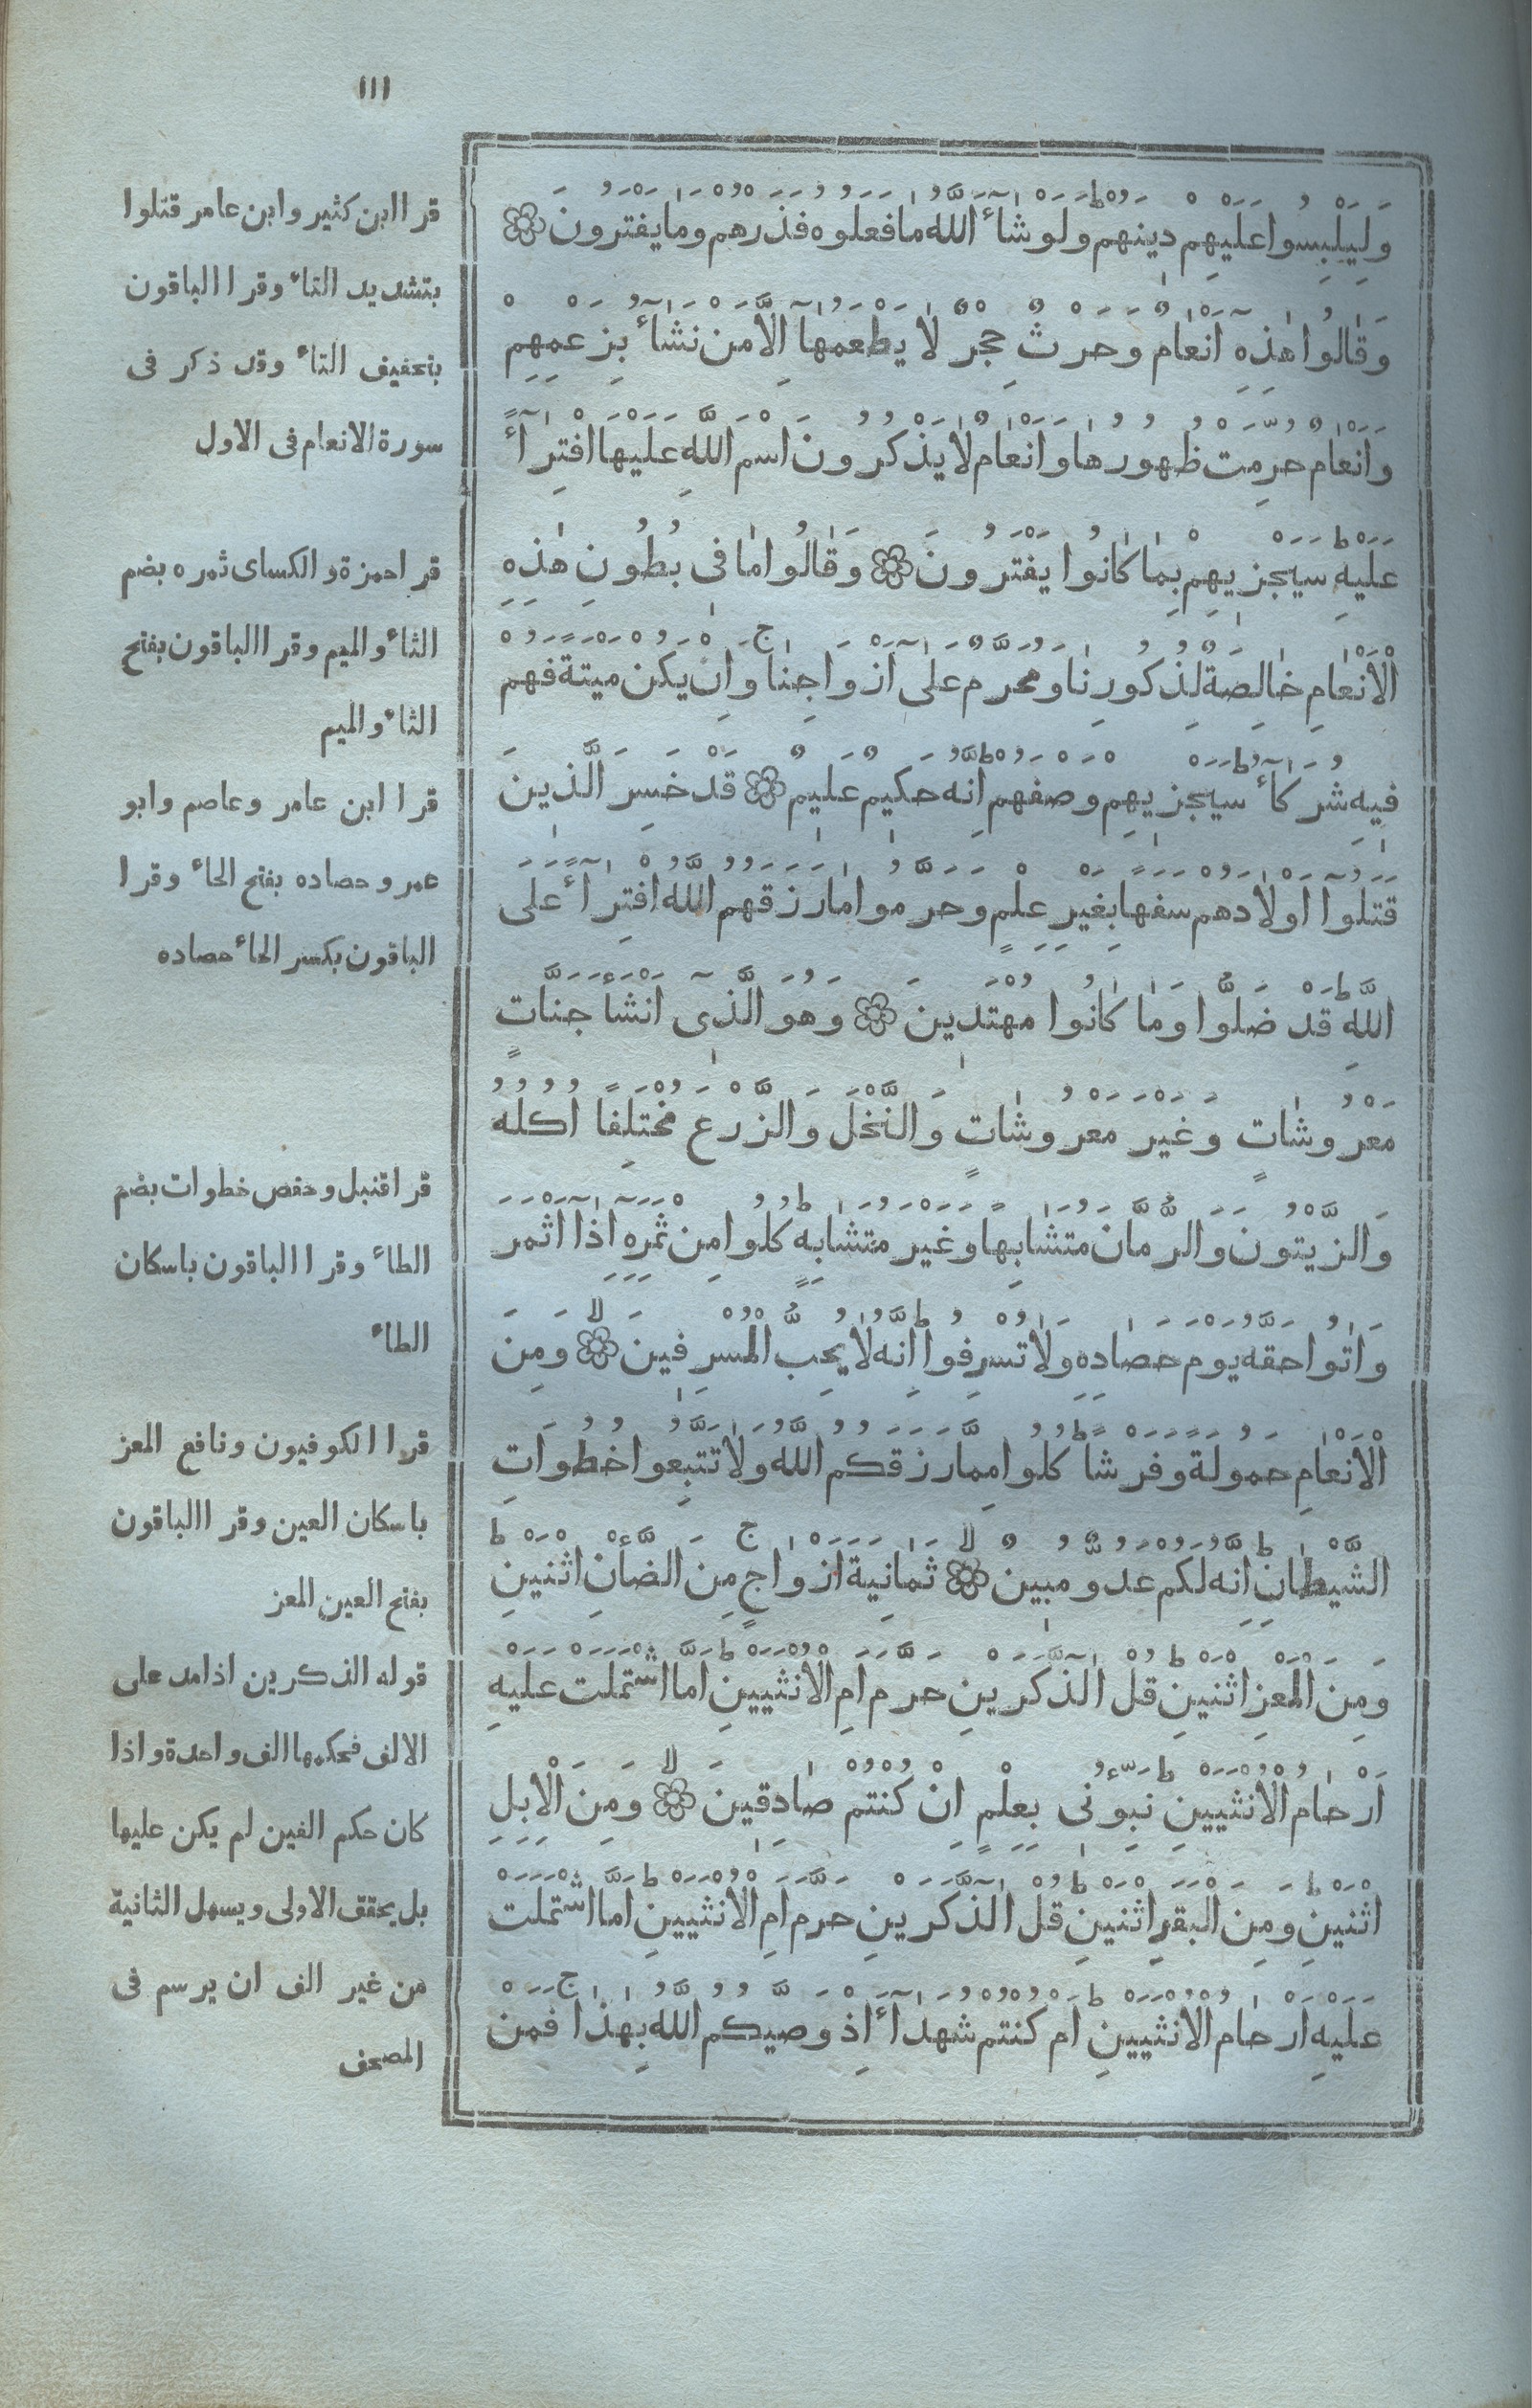 ١١١
وَلِيَلْبِسُوا عَلَيْهِمْ دِينَهُمْ وَلَوْ شَاءَ اللَّهُ مَا فَعَلُوهُ فَذَرْهُمْ وَمَا يَفْتَرُونَ
وَقَالُوا هَٰذِهِ أَنْعَامٌ وَحَرْثٌ حِجْرٌ لَا يَطْعَمُهَا إِلَّا مَنْ نَشَاءُ بِزَعْمِهِمْ
وَأَنْعَامٌ حُرِّمَتْ ظُهُورُهَا وَأَنْعَامٌ لَا يَذْكُرُونَ اسْمَ اللَّهِ عَلَيْهَا افْتِرَاءً
عَلَيْهِ سَيَجْزِيهِمْ بِمَا كَانُوا يَفْتَرُونَ وَقَالُوا مَا فِي بُطُونِ هَٰذِهِ
الْأَنْعَامِ خَالِصَةٌ لِذُكُورِنَا وَمُحَرَّمٌ عَلَى أَزْوَاجِنَا وَإِنْ يَكُنْ مَيْتَةً فَهُمْ
فِيهِ شُرَكَاءُ سَيَجْزِيهِمْ وَصْفَهُمْ إِنَّهُ حَكِيمٌ عَلِيمٌ قَدْ خَسِرَ الَّذِينَ
قَتَلُوا أَوْلَادَهُمْ سَفَهًا بِغَيْرِ عِلْمٍ وَحَرَّمُوا مَا رَزَقَهُمُ اللَّهُ افْتِرَاءً عَلَى
اللَّهِ قَدْ ضَلُّوا وَمَا كَانُوا مُهْتَدِينَ وَهُوَ الَّذِي أَنْشَأَ جَنَّاتٍ
مَعْرُوشَاتٍ وَغَيْرَ مَعْرُوشَاتٍ وَالنَّخْلَ وَالزَّرْعَ مُخْتَلِفًا أُكُلُهُ
وَالزَّيْتُونَ وَالرُّمَّانَ مُتَشَابِهًا وَغَيْرَ مُتَشَابِهٍ كُلُوا مِنْ ثَمَرِهِ إِذَا أَثْمَرَ
وَاٰتُوا حَقَّهُ يَوْمَ حَصَادِهِ وَلَا تُسْرِفُوا إِنَّهُ لَا يُحِبُّ الْمُسْرِفِينَ وَمِنَ
الْأَنْعَامِ حَمُولَةً وَفَرْشًا كُلُوا مِمَّا رَزَقَكُمُ اللَّهُ وَلَا تَتَّبِعُوا خُطُوَاتِ
الشَّيْطَانِ إِنَّهُ لَكُمْ عَدُوٌّ مُبِينٌ ثَمَانِيَةَ أَزْوَاجٍ مِنَ الضَّأْنِ اثْنَيْنِ
وَمِنَ الْمَعْزِ اثْنَيْنِ قُلْ آلذَّكَرَيْنِ حَرَّمَ أَمِ الْأُنْثَيَيْنِ أَمَّا اشْتَمَلَتْ عَلَيْهِ
أَرْحَامُ الْأُنْثَيَيْنِ نَبِّئُونِي بِعِلْمٍ إِنْ كُنْتُمْ صَادِقِينَ وَمِنَ الْإِبِلِ
اثْنَيْنِ وَمِنَ الْبَقَرِ اثْنَيْنِ قُلْ آلذَّكَرَيْنِ حَرَّمَ أَمِ الْأُنْثَيَيْنِ أَمَّا اشْتَمَلَتْ
عَلَيْهِ أَرْحَامُ الْأُنْثَيَيْنِ أَمْ كُنْتُمْ شُهَدَاءَ إِذْ وَصّٰيكُمُ اللَّهُ بِهَٰذَا فَمَنْ
قرا ابن كثير وابن عامر قتلوا
بتشديد التاء وقرا الباقون
بتخفيف التاء وقد ذكر فى
سورة الانعام فى الاول
قرا حمزة والكساى ثمره بضم
الثاء والميم وقرا الباقون بفتح
الثاء والميم
قرا ابن عامر وعاصم وابو
عمر وحصاده بفتح الحاء وقرا
الباقون بكسر الحاء حصاده
قرا قنبل وحفص خطوات بضم
الطاء وقرا الباقون باسكان
الطاء
قرا الكوفيون ونافع المعز
باسكان العين وقرا الباقون
بفتح العين المعز
قوله الذكرين اذا مد على
الالف فحكمها الف واحدة واذا
كان حكم الفين لم يكن عليها
بل يحقق الاولى ويسهل الثانية
من غير الف ان يرسم فى
المصحف